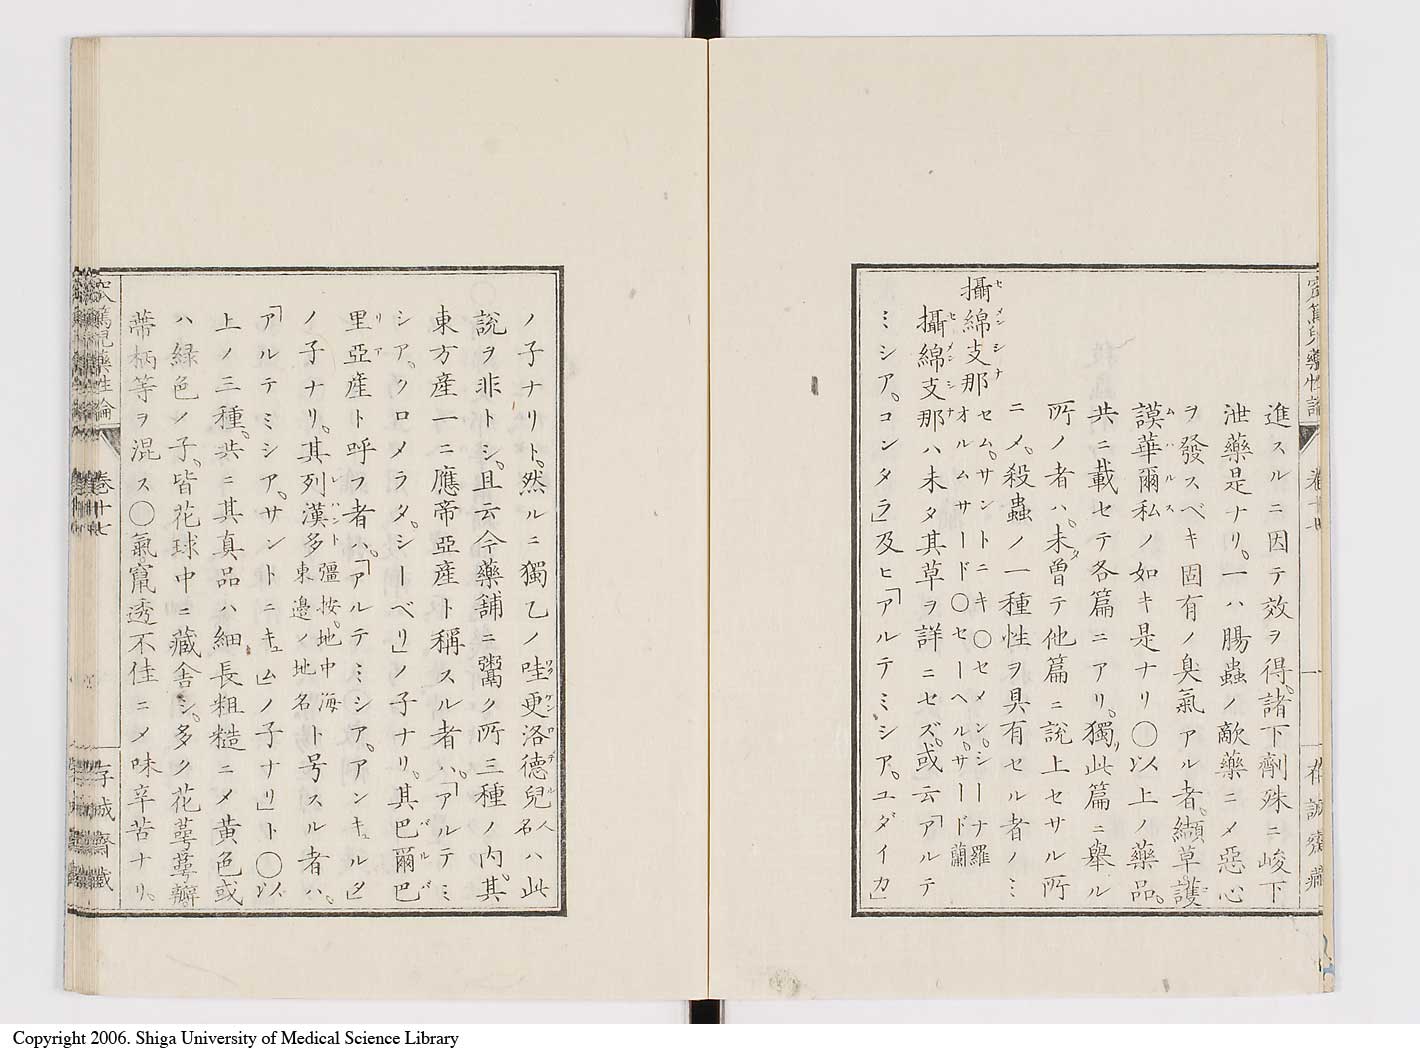 進スルニ因テ效ヲ得。諸下劑殊ニ峻下
泄藥是ナリ。一ハ腸蟲ノ敵藥ニメ惡心
ヲ發スベキ固有ノ臭氣アル者。纈草護
謨華爾私ノ如キ是ナリ〇以上ノ藥品。
共ニ載セテ各篇ニアリ。獨リ此篇ニ舉ル
所ノ者ハ。未タ曽テ他篇ニ説上セサル所
ニメ。殺蟲ノ一種性ヲ具有セル者ノミ
攝綿支那 セメンシーナ羅 オルムサード〇セーヘル。サード蘭
セム。サントニキ〇
攝綿支那ハ未タ其草ヲ詳ニセズ。或云「アルテ
ミシア。コンタラ」及ヒ「アルテミシア。ユダイカ」
ノ子ナリト。然ルニ獨乙ノ哇更洛德兒人名ハ此
説ヲ非トシ。且云今藥舗ニ鬻ク所三種ノ内。其
東方産一ニ應帝亞産ト稱スル者ハ。「アルテミ
シア。クロメラタ。シーベリ」ノ子ナリ。其巴爾巴
里亞産ト呼フ者ハ。「アルテミシア。アンキュルタ」
ノ子ナリ。其列漢多彊按。地中海東邊ノ地名ト号スル者ハ。
「アルテミシア。サントニキュム」ノ子ナリ」ト〇以
上ノ三種。共ニ其真品ハ細長粗糙ニメ黄色或
ハ緑色ノ子。皆花球中ニ藏舎シ。多ク花萼萼瓣。
蔕柄等ヲ混ス〇氣竄透不佳ニメ味辛苦ナリ。
窊篤兒藥性論
卷十七
存誠齋藏
Copyright 2006. Shiga University of Medical Science Library